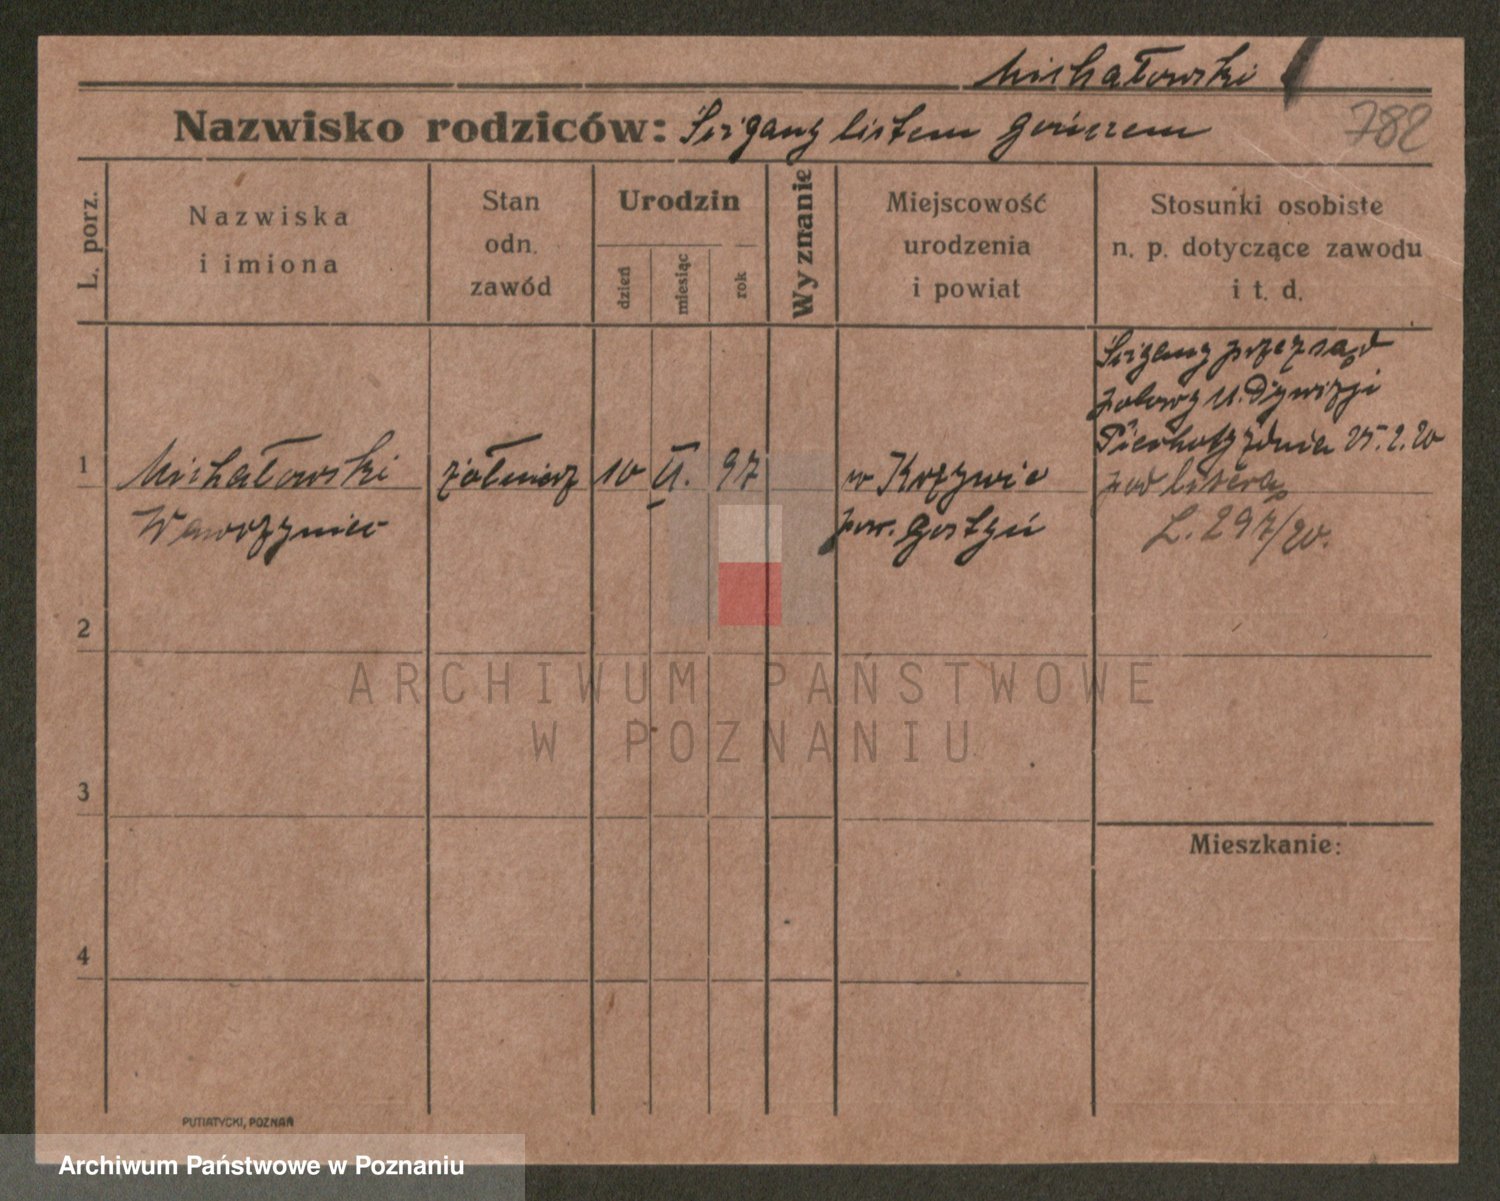 Michałowski
782
Nazwisko rodziców: Ścigany listem gończem
L. porz.
Nazwiska
i imiona
Stan
odn.
zawód
Urodzin
dzień
miesiąc
rok
Wyznanie
Miejscowość
urodzenia
i powiat
Stosunki osobiste
n. p. dotyczące zawodu
i t. d.
1
Michałowski
Wawrzyniec
żołnierz
10
97
w Krzywie
pow. Gostyń
Ścigany przez sąd
polowy 11. Dywizji
Piechoty z dnia 25.2.20
pod literą
L. 297/20.
2
3
4
Mieszkanie:
PUTIATYCKI, POZNAŃ
ARCHIWUM PAŃSTWOWE
W POZNANIU
Archiwum Państwowe w Poznaniu